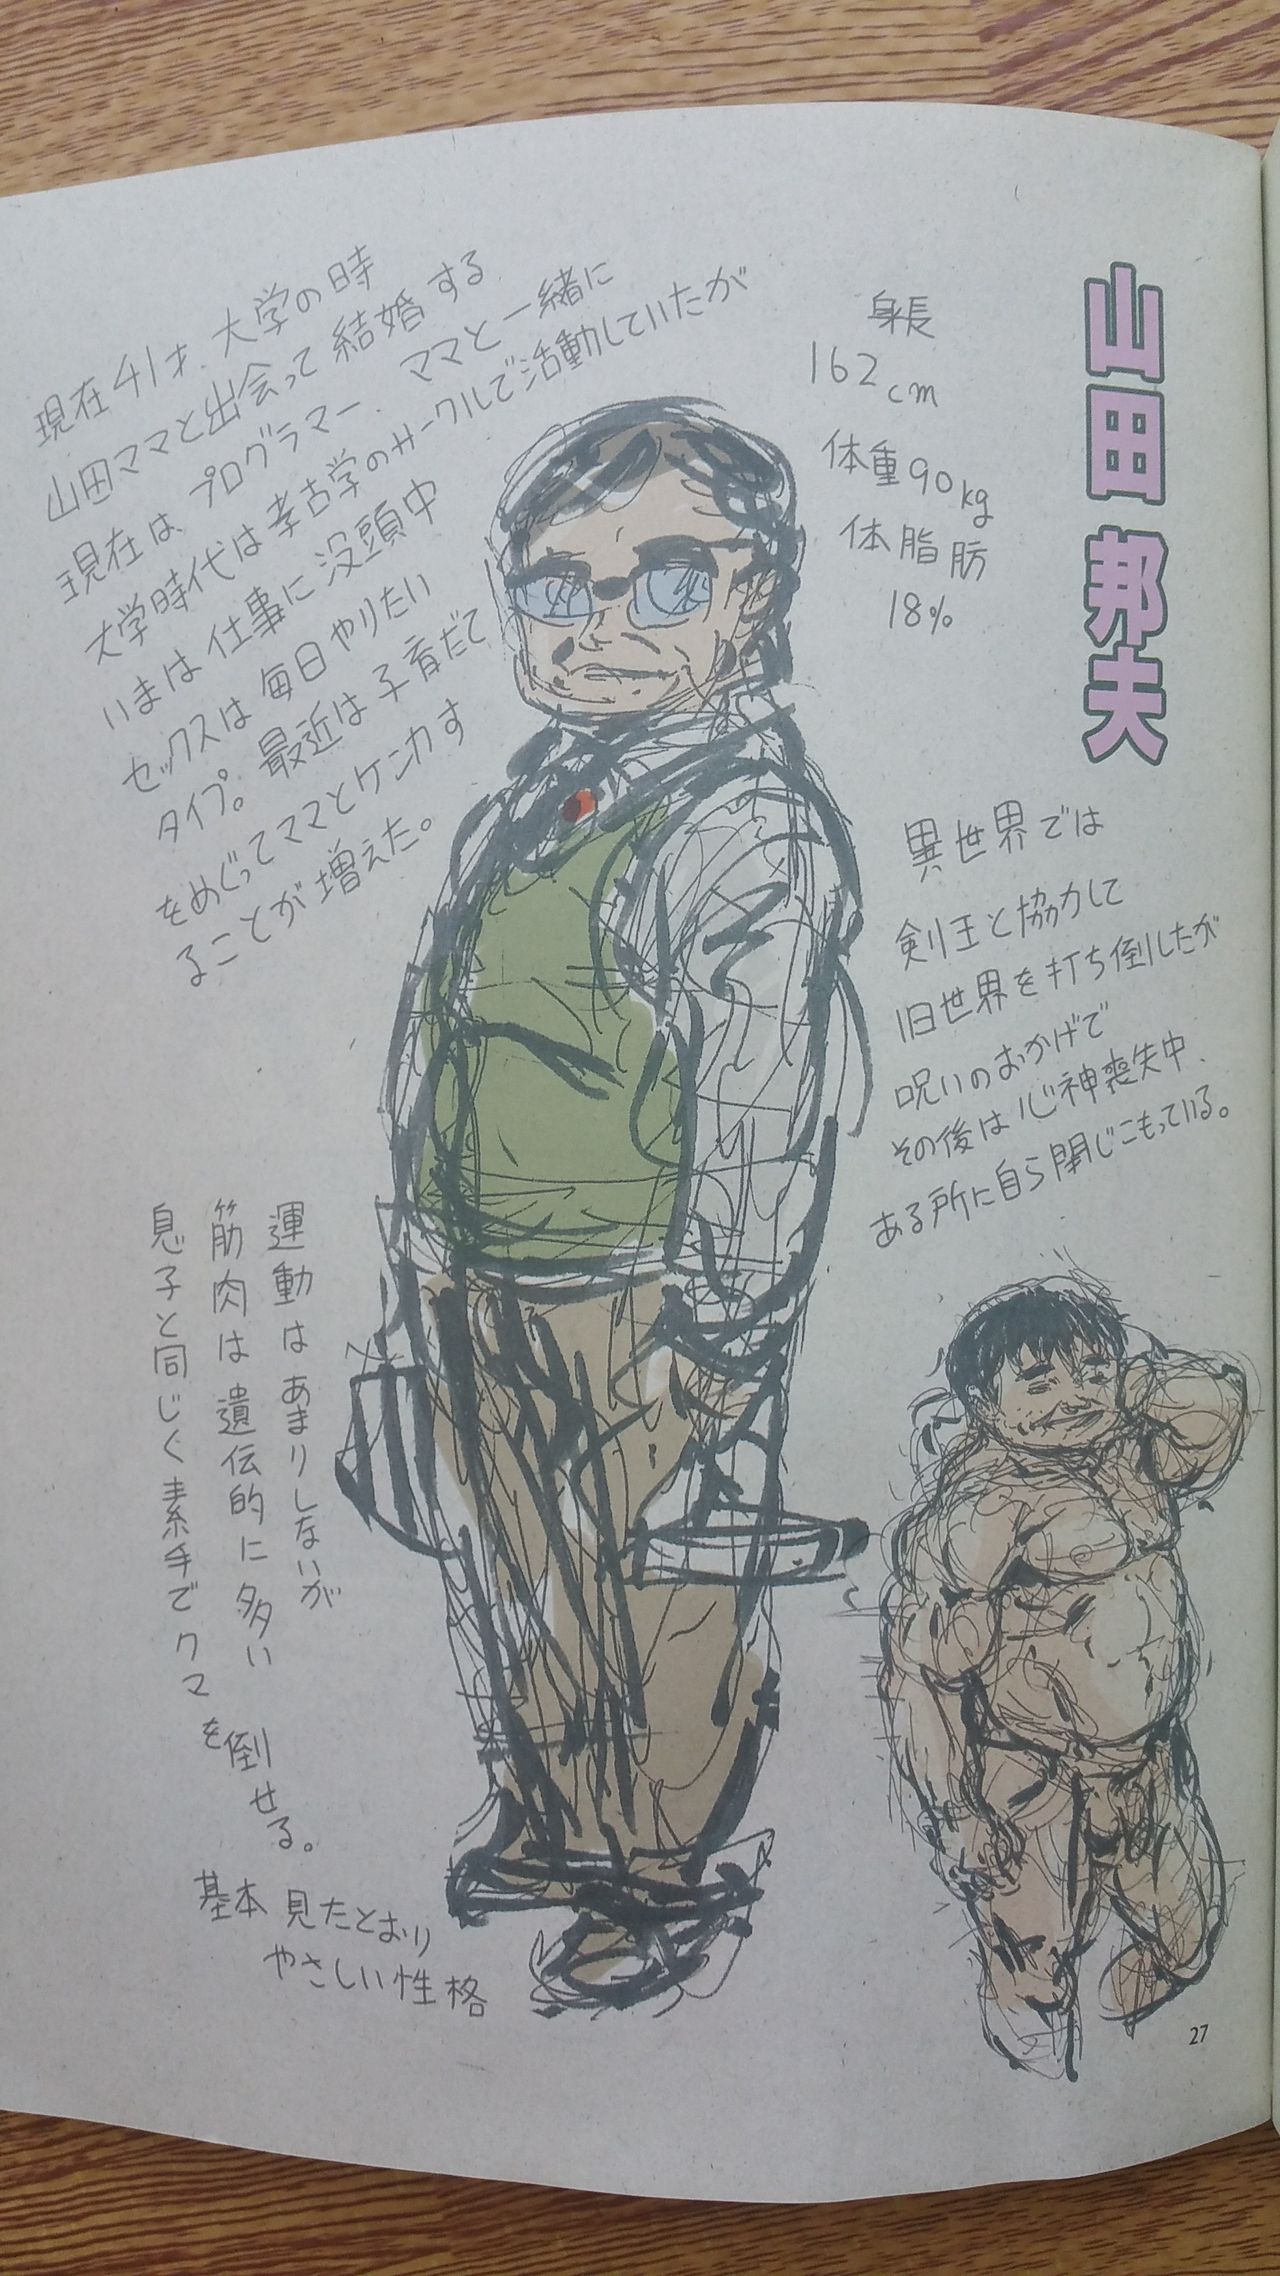 山田 邦夫
身長
162cm
体重90kg
体脂肪
18%
現在41才. 大学の時
山田ママと出会って結婚する
現在は、プログラマー. ママと一緒に
大学時代は考古学のサークルで活動していたが
いまは仕事に没頭中
セックスは毎日やりたい
タイプ。最近は子育だて
をめぐってママとケンカす
ることが増えた。
異世界では
剣王と協力して
旧世界を打ち倒したが
呪いのおかげで
その後は心神喪失中、
ある所に自ら閉じこもっている。
運動はあまりしないが
筋肉は遺伝的に多い
息子と同じく素手でクマを倒せる。
基本 見たとおり
やさしい性格
27